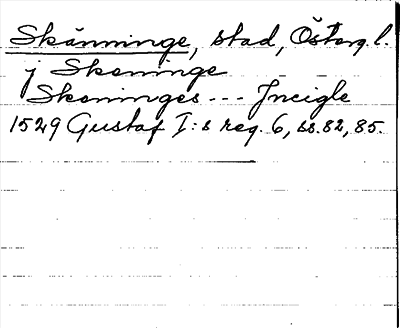 Skänninge, stad, Östorg l.
j Skeninge
Skeninges --- Jncigle
1529 Gustaf I:s reg. 6, ss. 82, 85.